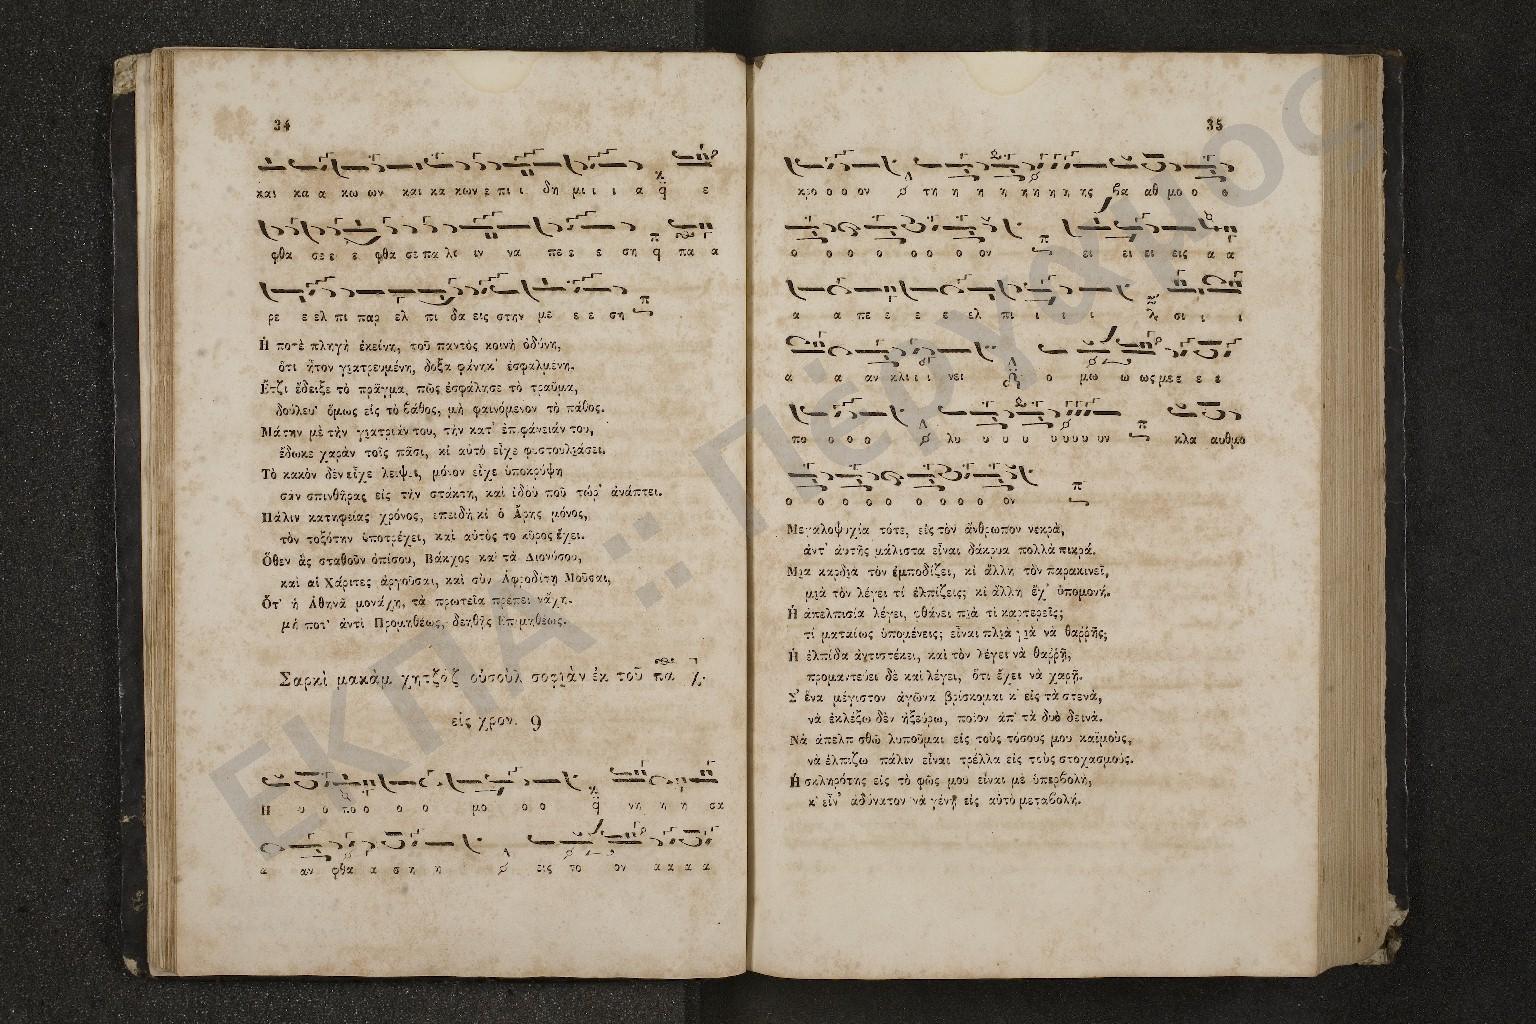 34
και κα α κω ων και κα κων ε πι ι δη μι ι ι α ε
φθα σε ε ε φθα σε πα λι ιν να πε ε ε ση πα α
ρε ε ελ πι παρ ελ πι δα εις στην με ε ε ση
Ἡ ποτὲ πληγὴ ἐκείνη, τοῦ παντὸς κοινὴ ὀδύνη,
ὅτι ἦτον γιατρευμένη, δόξα φάνηκ' ἐσφαλμένη.
Ἔτζι ἔδειξε τὸ πρᾶγμα, πῶς ἐσφάλησε τὸ τραῦμα,
δούλευ' ὅμως εἰς τὸ βάθος, μὴ φαινόμενον τὸ πάθος.
Μάτην μὲ τὴν γιατριάν του, τὴν κατ' ἐπιφάνειάν του,
ἔδωκε χαρὰν τοῖς πᾶσι, κι αὐτὸ εἶχε φιστουλιάσει.
Τὸ κακὸν δὲν εἶχε λείψει, μόνον εἶχε ὑποκρύψη
σὰν σπινθῆρας εἰς τὴν στάκτη, καὶ ἰδοὺ ποῦ τώρ' ἀνάπτει.
Πάλιν κατηφείας χρόνος, ἐπειδὴ κι ὁ Ἄρης μόνος,
τὸν τοξότην ὑποτρέχει, καὶ αὐτὸς τὸ κῦρος ἔχει.
Ὅθεν ἂς σταθοῦν ὀπίσου, Βάκχος καὶ τὰ Διονύσου,
καὶ αἱ Χάριτες ἀργοῦσαι, καὶ σὺν Ἀφροδίτῃ Μοῦσαι,
Ὅτ' ἡ Ἀθηνᾶ μονάχη, τὰ πρωτεῖα πρέπει νἄχῃ.
μή ποτ' ἀντὶ Προμηθέως, δεηθῇς Ἐπιμηθέως.
Σαρκὶ μακὰμ χητζὰζ οὐσοὺλ σοφιὰν ἐκ τοῦ πα
εἰς χρον. 9
Η υ ο πο ο ο ο μο ο ο νη η η σα
α αν φθα α ση η εις το ον α α α α
35
κρο ο ο ον τη η η η η η η ης βα αθ μο ο ο
ο ο ο ο ο ο ο ον ει ει ει εις α α
α α πε ε ε ε ελ πι ι ι ι σι ι ι
α α αν κλι ι ι νει ο μω ω ως με ε ε ε
πο ο ο ο λυ υ υ υ υ υ υ υν κλα αυθμο
ο ο ο ο ο ο ο ο ο ον
Μεγαλοψυχία τότε, εἰς τὸν ἄνθρωπον νεκρὰ,
ἀντ' αὐτῆς μάλιστα εἶναι δάκρυα πολλὰ πικρά.
Μιὰ καρδιὰ τὸν ἐμποδίζει, κι ἄλλη τὸν παρακινεῖ,
μιὰ τὸν λέγει τί ἐλπίζεις; κι ἄλλη ἔχ' ὑπομονή.
Ἡ ἀπελπισία λέγει, φθάνει πιὰ τί καρτερεῖς;
τί ματαίως ὑπομένεις; εἶναι πλιὰ γιὰ νὰ θαῤῥῇς;
Ἡ ἐλπίδα ἀντιστέκει, καὶ τὸν λέγει νὰ θαῤῥῇ,
προμαντεύει δὲ καὶ λέγει, ὅτι ἔχει νὰ χαρῇ.
Σ' ἕνα μέγιστον ἀγῶνα βρίσκομαι κ' εἰς τὰ στενὰ,
νὰ ἐκλέξω δὲν ἠξεύρω, ποῖον ἀπ' τὰ δυὸ δεινά.
Νὰ ἀπελπισθῶ λυποῦμαι εἰς τοὺς τόσους μου καϊμοὺς,
νὰ ἐλπίζω πάλιν εἶναι τρέλλα εἰς τοὺς στοχασμούς.
Ἡ σκληρότης εἰς τὸ φῶς μου εἶναι μὲ ὑπερβολὴ,
κ' εἶν' ἀδύνατον νὰ γένῃ εἰς αὐτὸ μεταβολή.
ΕΚΠΑ :: Πέργαμος